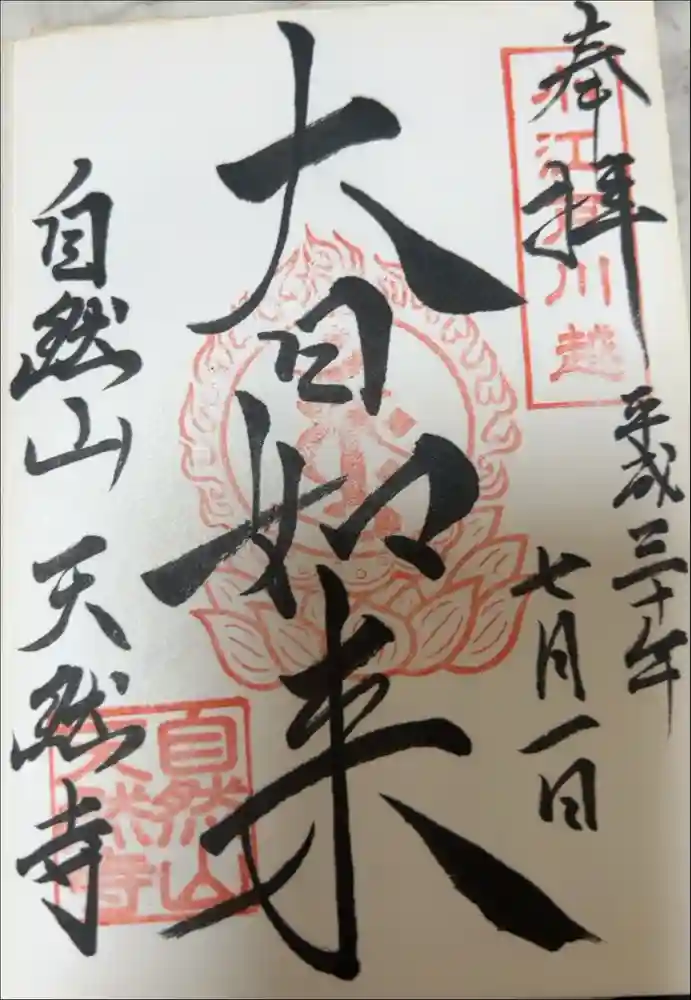 奉拝
平成三十年
七月一日
大日如来
自然山 天然寺
江戸川越
自然山
天然寺